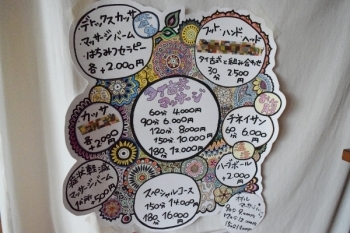 ・デトックスカッサ
・マッサージバーム
・はちみつセラピー
各+2.000円
フット・ハンド・ヘッド
タイ古式と組み合わせ
30分 2.500円
タイ古式
マッサージ
60分 4.000円
90分 6.000円
120分 8.000円
150分 10.000円
180分 12.000円
カッサ
チネイザン
60分 6.000円
症状軽減
マッサージバーム
ハーブボール
+2.000円
スペシャルコース
150分 14.000円
180分 16.000円
オイル